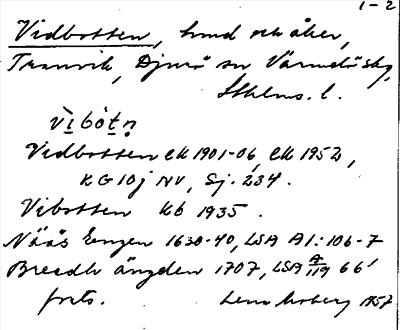 1-2
Vidbotten, hmd och åker,
Tranvik, Djurö sn Värmdö skg,
Sthlms. l.
vìbòtn
Vidbotten ek 1901-06, ek 1952,
KG 10j NV, Sj. 234.
Vibotten kb 1935.
Nääs Engen 1630-40, LSA A1:106-7
Bredh ängden 1707, LSA A/119 66'
forts. Lena Moberg 1957